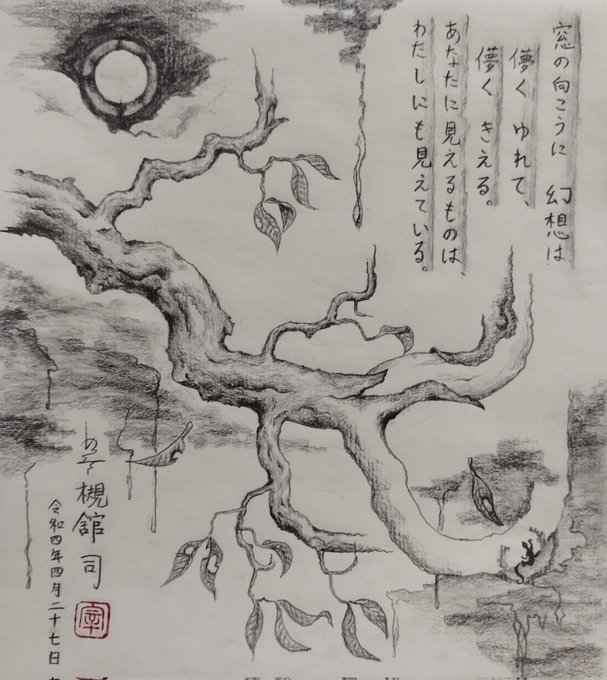 窓の向こうに 幻想は
儚くゆれて、
儚く きえる。
あなたに見えるものは
わたしにも見えている。
槻舘 司
令和四年四月二十七日